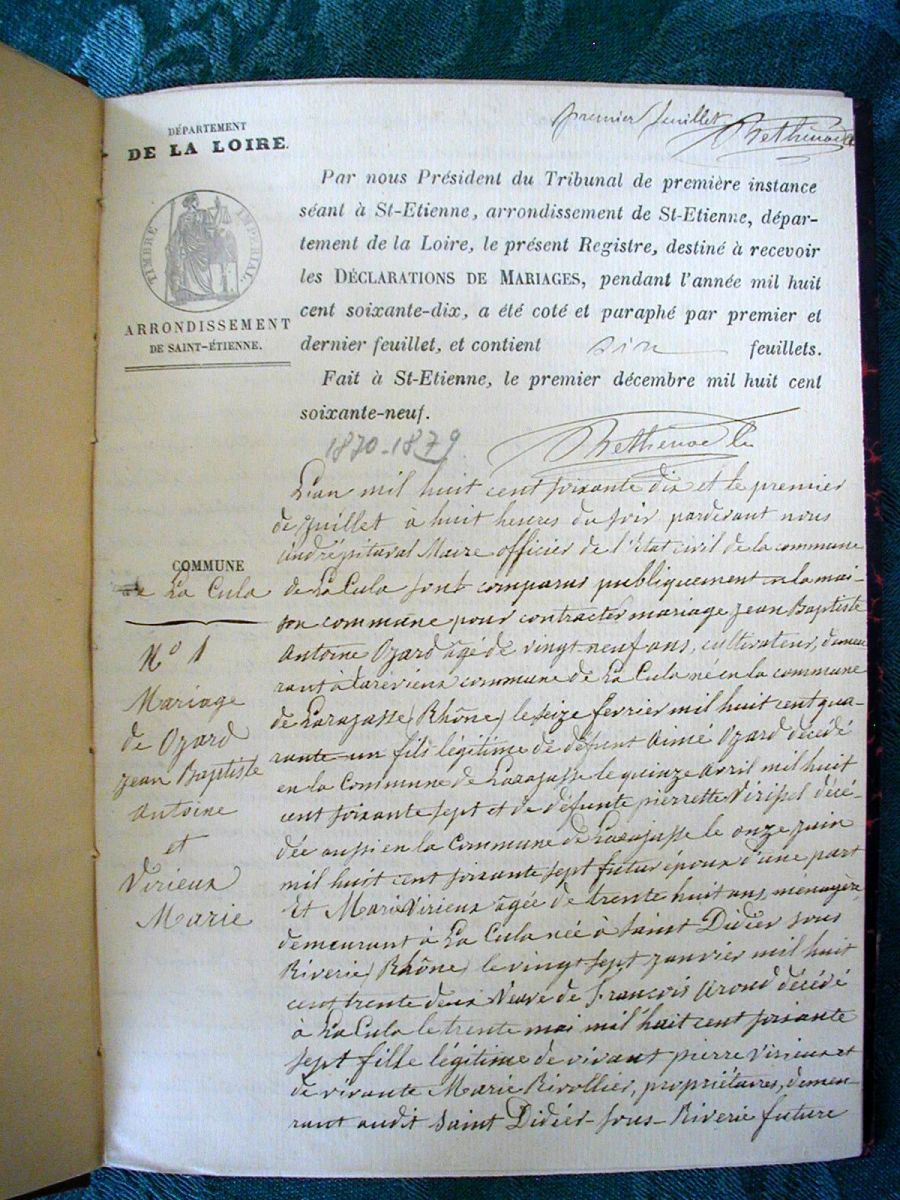 premier feuillet
DÉPARTEMENT
DE LA LOIRE.
TIMBRE IMPÉRIAL
ARRONDISSEMENT
DE SAINT-ÉTIENNE.
Par nous Président du Tribunal de première instance
séant à St-Etienne, arrondissement de St-Etienne, dépar-
tement de la Loire, le présent Registre, destiné à recevoir
les DÉCLARATIONS DE MARIAGES, pendant l'année mil huit
cent soixante-dix, a été coté et paraphé par premier et
dernier feuillet, et contient six feuillets.
Fait à St-Etienne, le premier décembre mil huit cent
soixante-neuf.
1870-1879
COMMUNE
de La Cula
N° 1
Mariage
de Ozard
jean Baptiste
Antoine
et
Virieux
Marie
L'an mil huit cent soixante dix et le premier
de juillet à huit heures du soir pardevant nous
Maire officier de l'état civil de la commune
de La Cula sont comparus publiquement en la mai-
son commune pour contracter mariage jean Baptiste
Antoine Ozard âgé de vingt neuf ans, cultivateur, demeu
rant à commune de La Cula né en la commune
de Larajasse (Rhône) le seize fevrier mil huit cent qua-
rante-un fils légitime de défunt Aimé Ozard décédé
en la Commune de Larajasse le quinze Avril mil huit
cent soixante sept et de défunte pierrette décé-
dée aussi en la Commune de Larajasse le onze juin
mil huit cent soixante sept futur époux d'une part
Et Marie Virieux âgée de trente huit ans, ménagère,
demeurant à La Cula née à Saint Didier sous
Riverie (Rhône) le vingt sept janvier mil huit
cent trente deux Veuve de François décédé
à La Cula le trente mai mil huit cent soixante
sept fille légitime de vivant pierre Virieux et
de vivante Marie Rivollier, propriétaires, demeu-
rant audit Saint Didier-sous-Riverie future